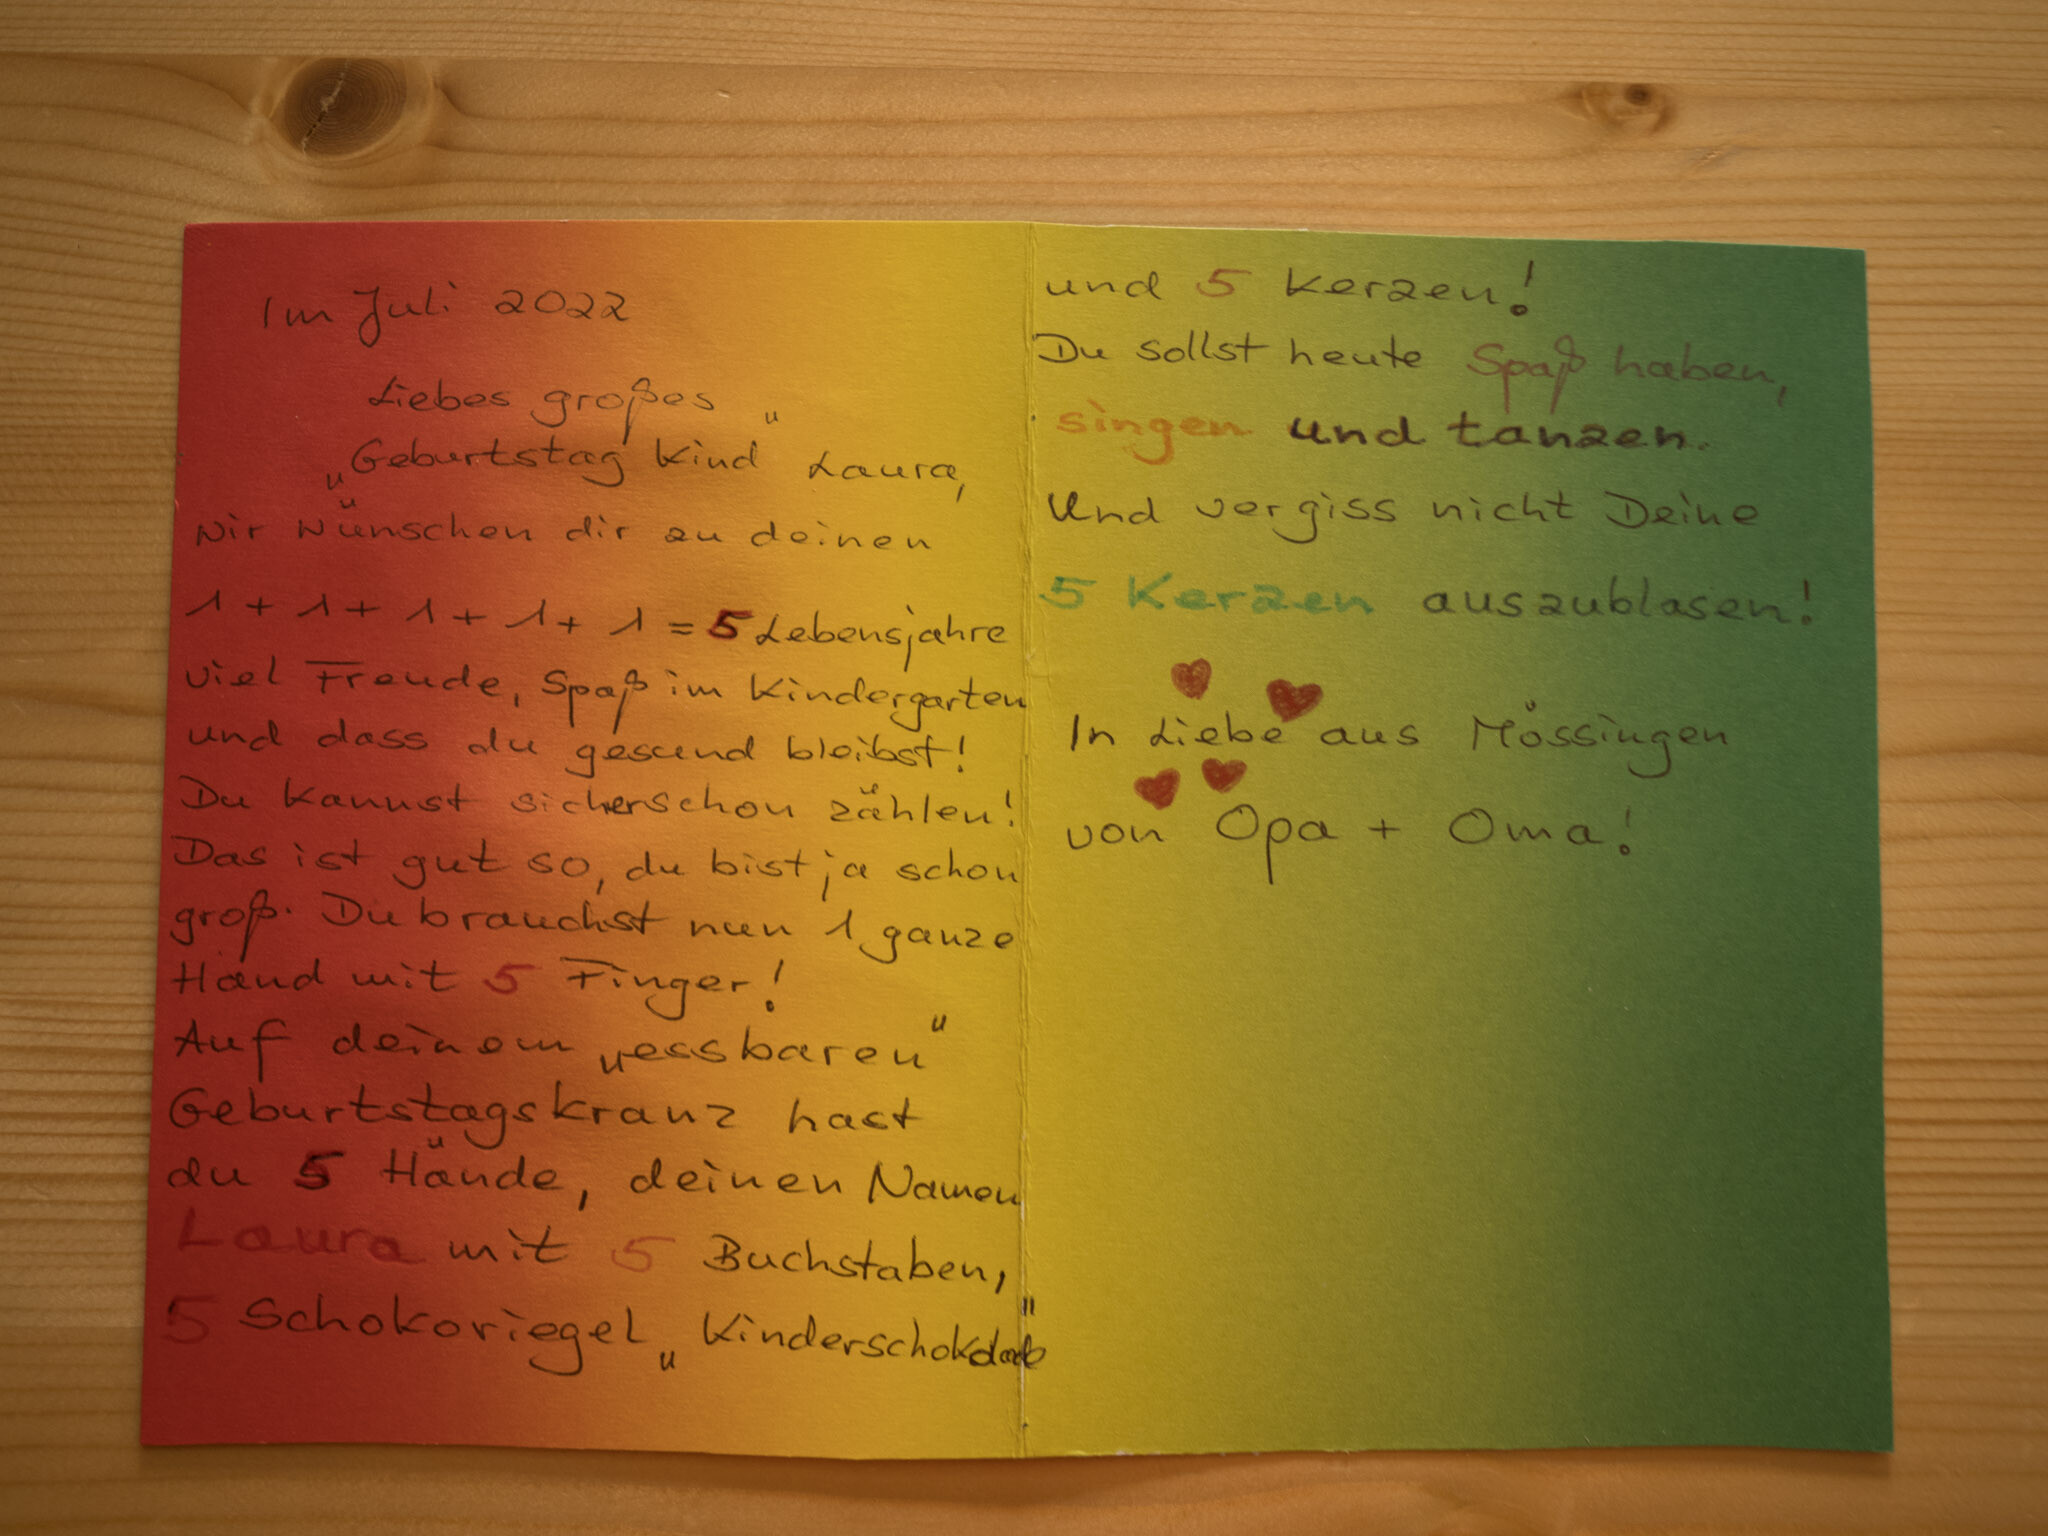 Im Juli 2022
Liebes großes
„Geburtstag Kind" Laura,
wir wünschen dir zu deinen
1 + 1 + 1 + 1 + 1 = 5 Lebensjahre
viel Freude, Spaß im Kindergarten
und dass du gesund bleibst!
Du kannst sicher schon zählen!
Das ist gut so, du bist ja schon
groß. Du brauchst nun 1 ganze
Hand mit 5 Finger!
Auf deinem „essbaren"
Geburtstagskranz hast
du 5 Hände, deinen Namen
Laura mit 5 Buchstaben,
5 Schokoriegel „Kinderschokolade"
und 5 Kerzen!
Du sollst heute Spaß haben,
singen und tanzen.
Und vergiss nicht Deine
5 Kerzen auszublasen!
In Liebe aus Mössingen
von Opa + Oma!